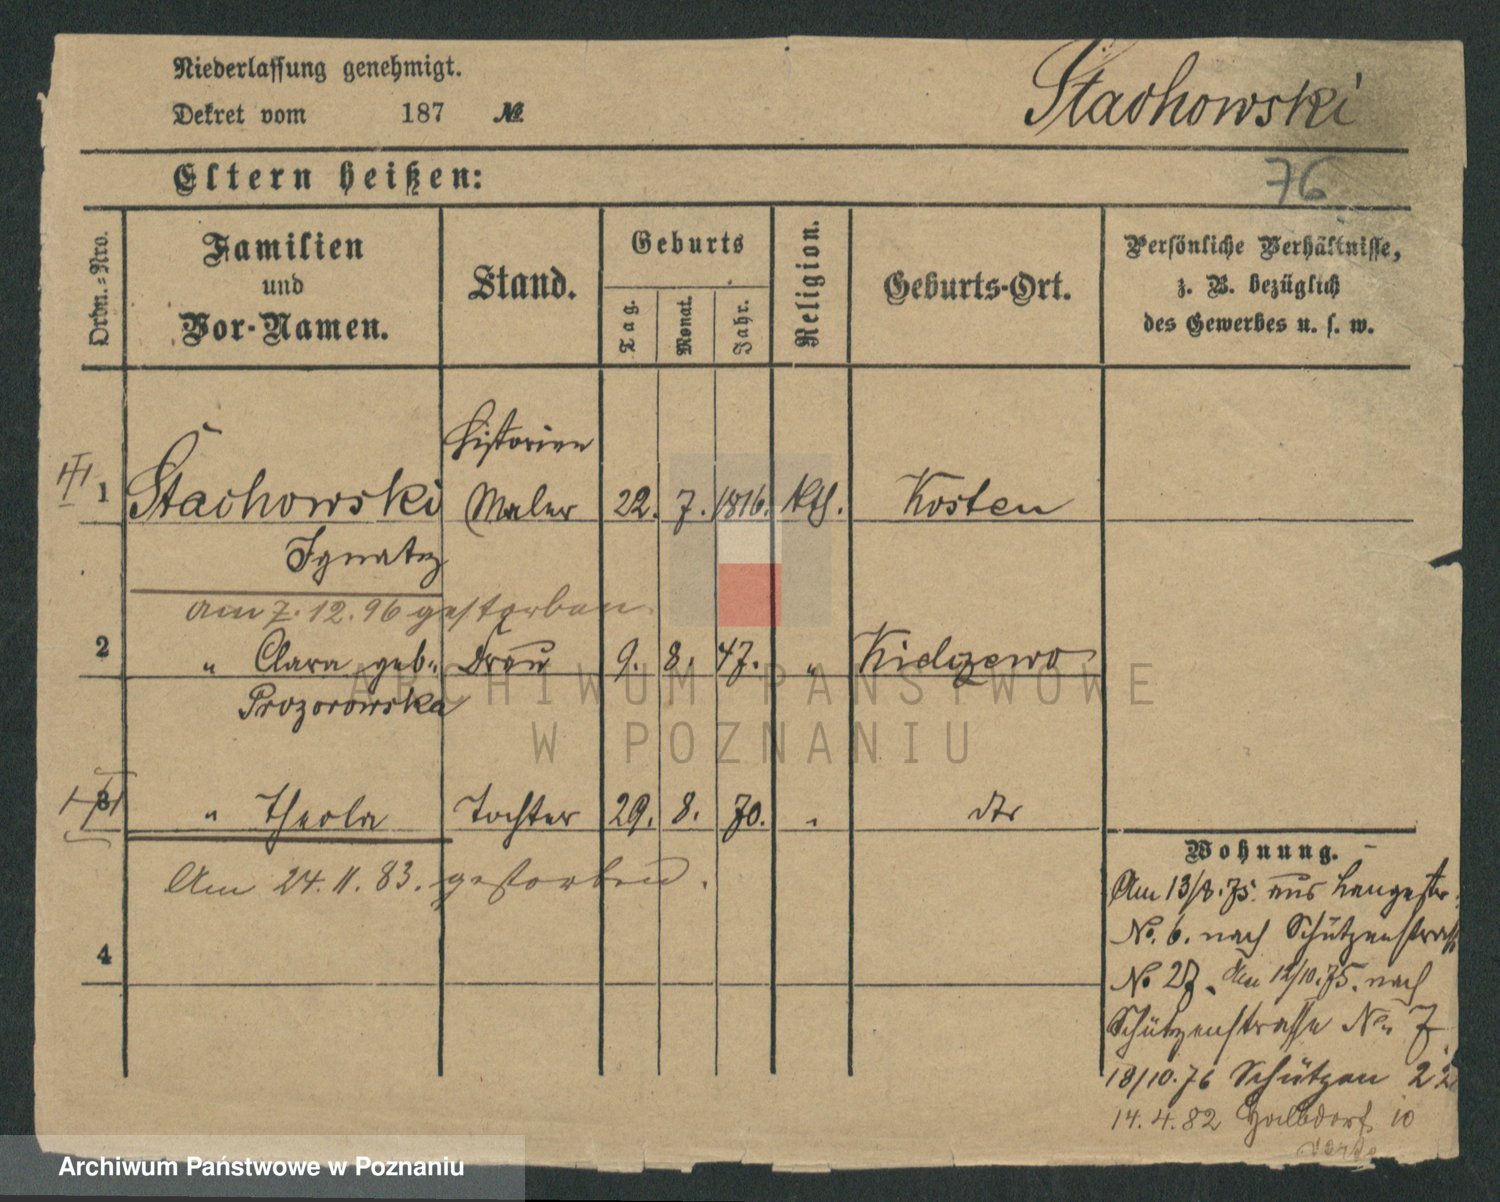 Niederlassung genehmigt.
Stachowski
Dekret vom 187 №
76
Eltern heißen:
Ordn.-Nro.
Familien
und
Vor-Namen.
Stand.
Geburts
Tag.
Monat.
Jahr.
Religion.
Geburts-Ort.
Persönliche Verhältnisse,
z. B. bezüglich
des Gewerbes u. s. w.
Historien
1 Stachowski Maler 22. 7. 1816. kth. Kosten
Ignatz
am 7. 12. 96 gestorben.
2 " Clara geb. Frau 9. 8. 47. "
Prozorowska
3 " Theola Tochter 29. 8. 70. "
Am 24. 11. 83. gestorben.
4
Wohnung.
Am 13/8. 75. aus Langestr.
No. 6. nach Schützenstrasse
No 27. Am 12/10. 75. nach
Schützenstrasse No 7
18/10. 76 Schützen 22
14. 4. 82 Halbdorf 10
ARCHIWUM PAŃSTWOWE
W POZNANIU
Archiwum Państwowe w Poznaniu